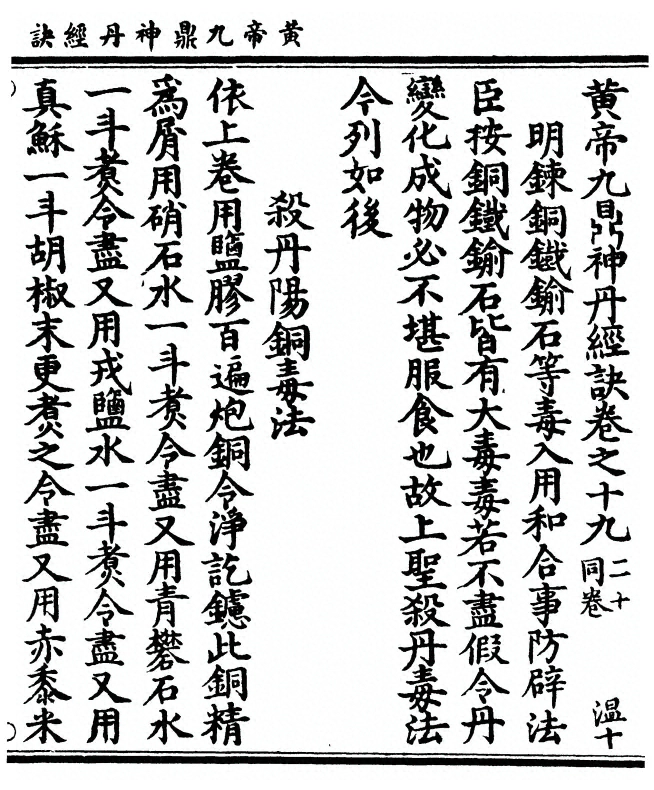 黃帝九鼎神丹經訣
黃帝九鼎神丹經訣卷之十九 二十同卷 温十
明鍊銅鐵鍮石等毒入用和合事防辟法
臣按銅鐵鍮石皆有大毒毒若不盡假令丹
變化成物必不堪服食也故上聖殺丹毒法
今列如後
殺丹陽銅毒法
依上卷用鹽膠百遍炮銅令淨訖鑢此銅精
為屑用硝石水一斗煮令盡又用青礬石水
一斗煮令盡又用戎鹽水一斗煮令盡又用
真穌一斗胡椒末更煮之令盡又用赤黍米